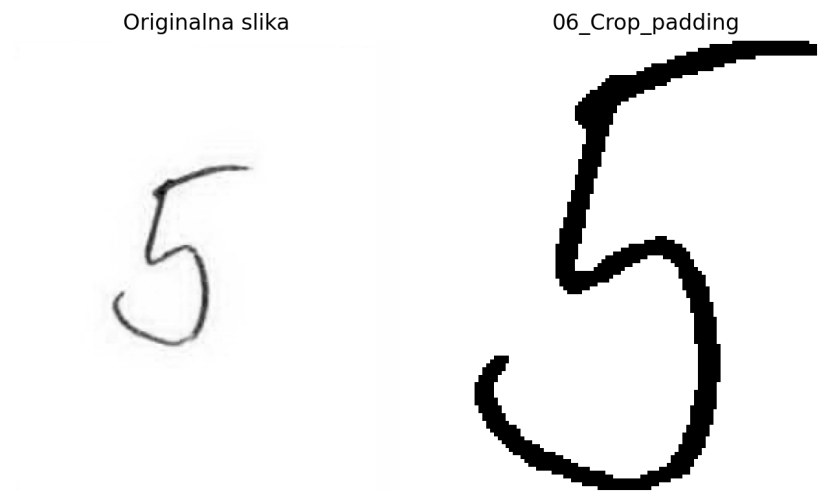 Originalna slika
06_Crop_padding
5
5